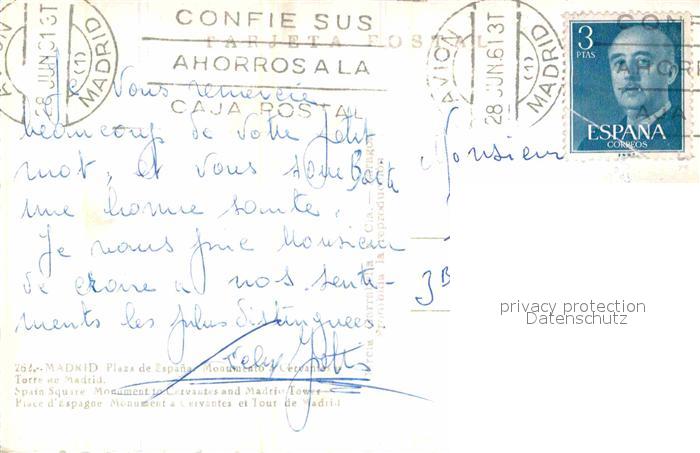 CONFIE SUS
AHORROS A LA
CAJA POSTAL
TARJETA POSTAL
AVION
28 JUN.61 3T
MADRID
(1)
AVION
28 JUN.61 3T
MADRID
(1)
3
PTAS
ESPAÑA
CORREOS
CONF
AHORR
CAJA
Je Vous remercie
beaucoup de votre petit
mot, et vous souhaite
une bonne sante.
Je vous prie Monsieur
de croire a nos senti-
ments les plus distinguees.
Monsieur
3B
privacy protection
Datenschutz
262.- MADRID Plaza de España Monumento a Cervantes
Torre de Madrid.
Spain Square Monument to Cervantes and Madrid Tower
Place d'Espagne Monument a Cervantes et Tour de Madrid